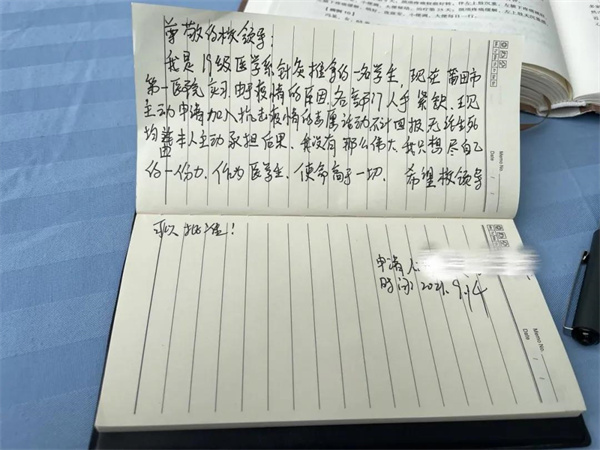 尊敬的校领导：
我是19级医学系针灸推拿的一名学生，现在莆田市
第一医院实习.由于疫情的原因.各部门人手紧缺.现
主动申请加入抗击疫情的志愿活动不计回报无论生死
均由本人主动承担后果。我没有那么伟大.我只想尽自己
的一份力.作为医学生.使命高于一切. 希望校领导
可以批准！
申请人：
时间：2021.9.14
Memo No.
Date / /
Memo No.
Date / /